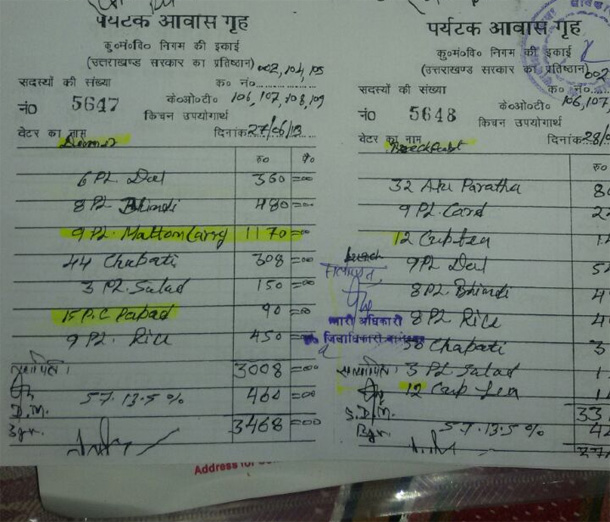 पर्यटक आवास गृह
कु०मं०वि० निगम की इकाई
(उत्तराखण्ड सरकार का प्रतिष्ठान) 002, 104, 105
सदस्यों की संख्या क० नं०
106, 107, 108, 109
नं० 5647 के०ओ०टी०
किचन उपयोगार्थ
वेटर का नाम दिनांक 27/06/13
Dinner
रु० पै०
6 Pl. Dal 360 =00
8 Pl. Bhindi 480 =00
9 Pl. Mutton Curry 1170 =00
44 Chapati 308 =00
3 Pl. Salad 150 =00
15 P.C Papad 90 =00
9 Pl. Rice 450 =00
3008 =00
S.T. 13.5 % 460 =00
D.M.
Bgr. 3468 =00
पर्यटक आवास गृह
कु०मं०वि० निगम की इकाई
(उत्तराखण्ड सरकार का प्रतिष्ठान) 002
सदस्यों की संख्या क० नं०
106, 107
नं० 5648 के०ओ०टी०
किचन उपयोगार्थ
वेटर का नाम दिनांक 28/0
Breakfast
रु०
32 Alu Paratha
9 Pl. Curd
12 Cup Tea
Lunch
9 Pl. Dal
8 Pl. Bhindi
8 Pl. Rice
38 Chapati
3 Pl. Salad
12 Cup Tea
33
S.T. 13.5 %
S.D.M.
Bgr.
सत्यापित
प्रभारी अधिकारी
कृते जिलाधिकारी बागेश्वर
Address for